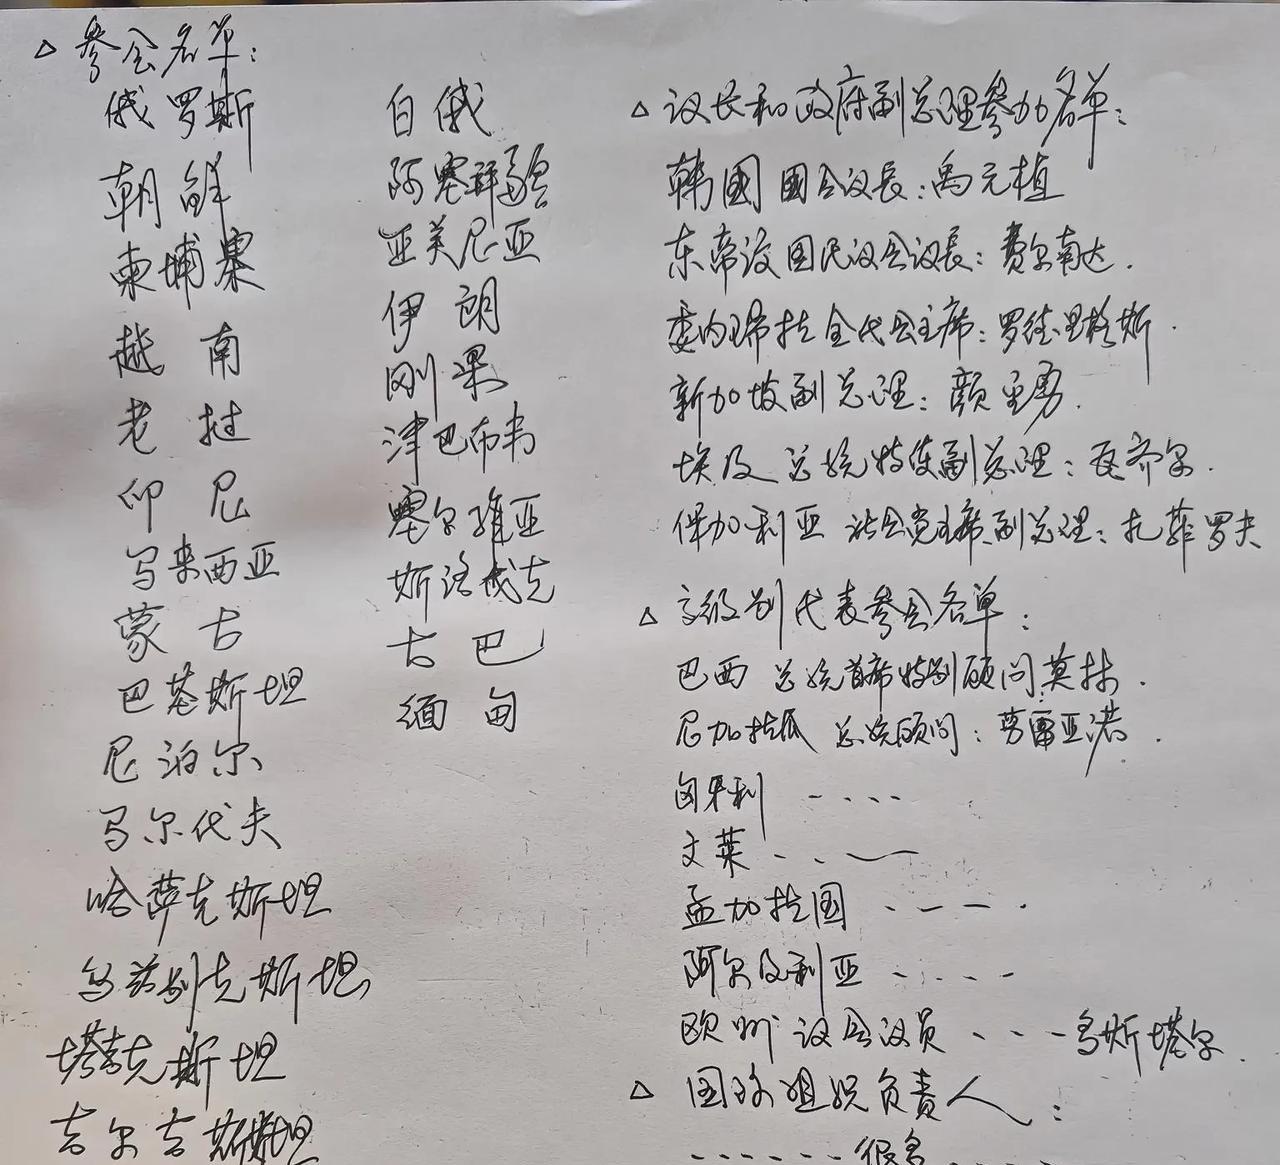 △ 参会名单：
俄罗斯
朝鲜
柬埔寨
越南
老挝
印尼
马来西亚
蒙古
巴基斯坦
尼泊尔
马尔代夫
哈萨克斯坦
乌兹别克斯坦
塔吉克斯坦
吉尔吉斯斯坦
白俄
阿塞拜疆
亚美尼亚
伊朗
刚果
津巴布韦
塞尔维亚
斯洛伐克
古巴
缅甸
△ 议长和政府副总理参加名单：
韩國 國会议长：禹元植
东帝汶国民议会议长：费尔南达.
委内瑞拉全代会主席：罗德里格斯.
新加坡副总理：颜金勇.
埃及 总统特使副总理：瓦齐尔.
保加利亚 社会党主席、副总理：扎菲罗夫
△ 高级别代表参会名单：
巴西 总统首席特别顾问莫林.
尼加拉瓜 总统顾问：劳雷亚诺.
匈牙利 - - - -
文莱 . . —
孟加拉国 - - - - .
阿尔及利亚 - - - - -
欧州议会议员 - - - 乌斯塔尔.
△ 国际组织负责人：
. . - - - - 很多 . . . . .